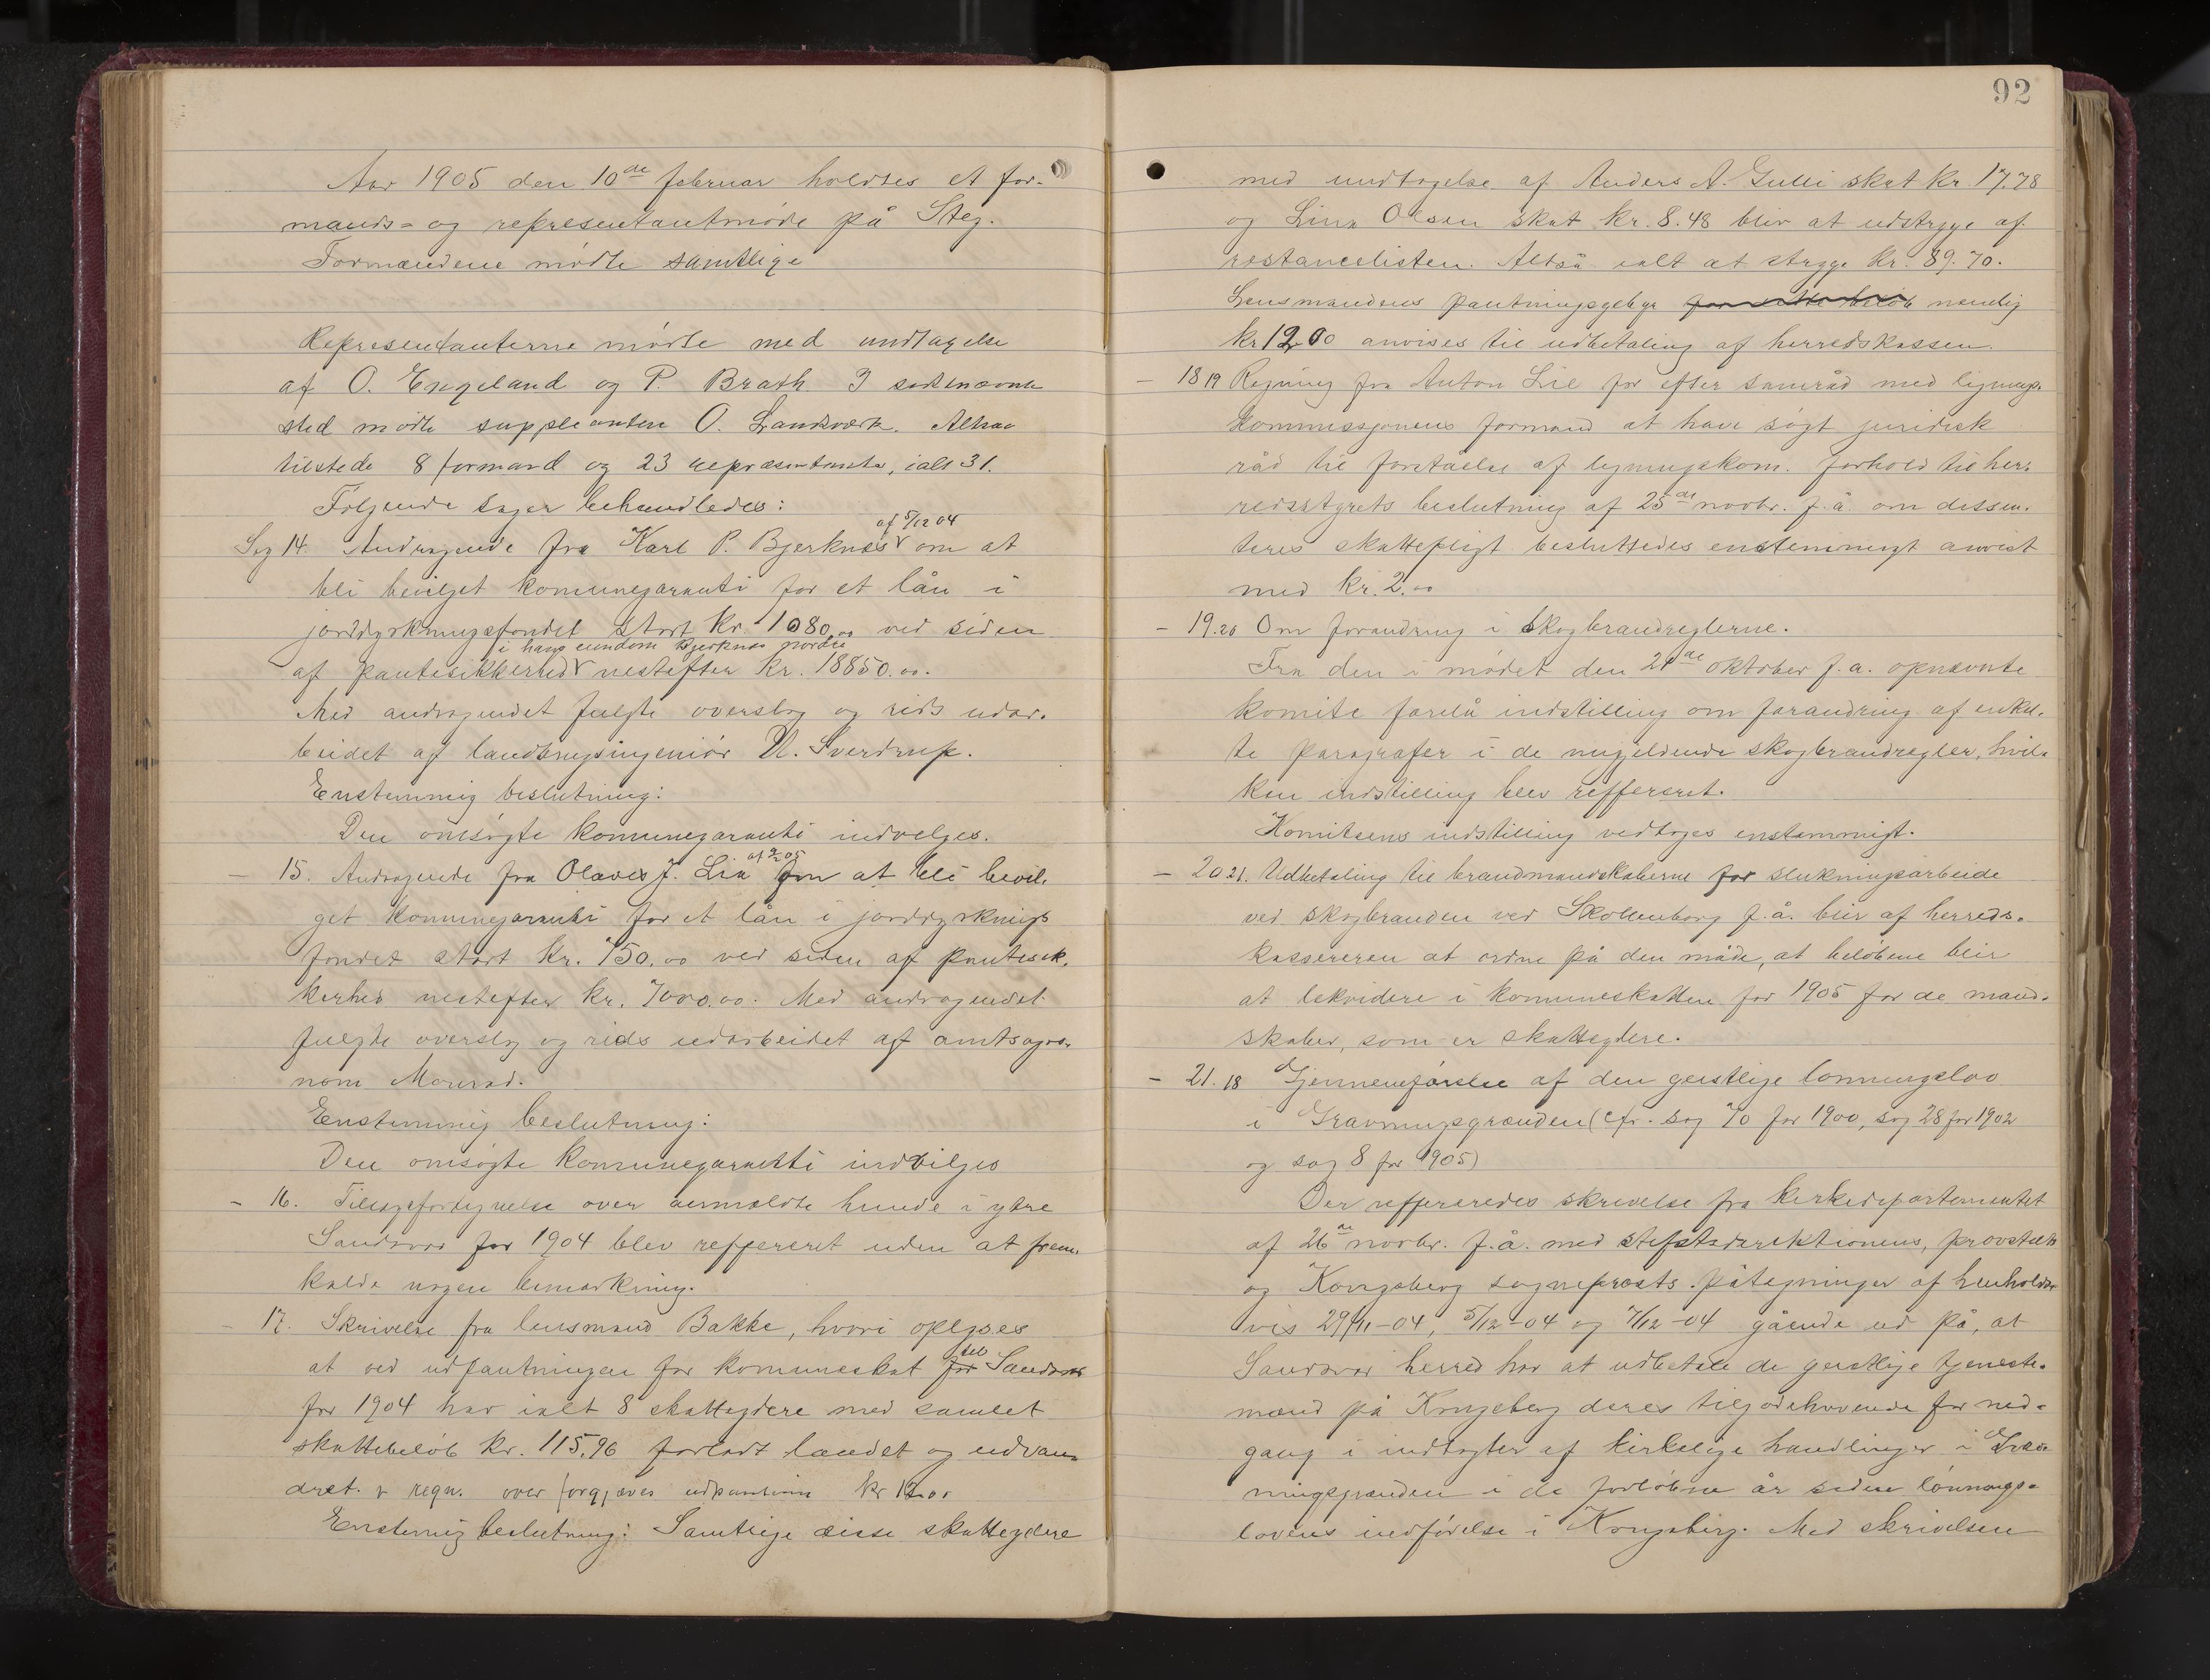 Aar 1905 den 10de februar holdtes et for-
mands- og representantmøde på Steg.
Formændene mødte samtlige
Representanterne mødte med undtagelse
af O. Engeland og P. Brath. I sidstnævnte
sted mødte suppleanten O. Landsværk. Altsaa
tilstede 8 formænd og 23 repræsentanter, ialt 31.
Følgende sager behandledes:
af 5/12 04
Sag 14. Andragende fra Karl P. Bjerknes om at
bli bevilget kommunegaranti for et lån i
jorddyrkningsfondet stort kr. 1080,00 ved siden
i hans eiendom Bjerknes nordre
af pantesikkerhed nestefter kr. 18850.00.
Med andragendet fulgte overslag og rids udar-
beidet af landbrugsingeniør U. Sverdrup.
Enstemmig beslutning:
Den omsøgte kommunegaranti indvilges.
af 9/2 05
- 15. Andragende fra Olaves J. Lia om at bli bevil-
get kommunegaranti for et lån i jorddyrknings
fondet stort kr. 750.00 ved siden af pantesik-
kerhed nestefter kr. 7000.00. Med andragendet
fulgte overslag og rids udarbeidet af amtsagro-
nom Monrad.
Enstemmig beslutning:
Den omsøgte kommunegaranti indvilges
- 16. Tillægsfortegnelse over anmeldte hunde i ytre
Sandsvær for 1904 blev reffereret uden at frem-
kalde nogen bemærkning.
- 17. Skrivelse fra lensmand Bakke, hvori oplyses
at ved udpantningen for kommuneskat til Sandsvær
for 1904 har ialt 8 skatteydere med samlet
skattebeløb kr. 115,96 forladt landet og udvan-
dret. & regn. over forgjæves udpantning kr 12.00
Enstemmig beslutning: Samtlige disse skatteydere
92
med undtagelse af Anders A. Gulli skat kr. 17.78
og Lina Olsen skat kr. 8.48 blir at udstryge af
restancelisten. Altså ialt at stryge kr. 89.70.
Lensmandens pantningsgebyr for dette beløb nemlig
kr 12 00 anvises til udbetaling af herredskassen.
- 18 19 Regning fra Anton Lie for efter samråd med lignings-
kommissjonens formand at have søgt juridisk
råd til forståelse af ligningskom. forhold til her-
redsstyrets beslutning af 25de novbr. f.å. om dissen-
teres skattepligt besluttedes enstemmigt anvist
med kr. 2.00
- 19.20 Om forandring i skogbrandreglerne.
Fra den i mødet den 21de oktober f.a. opnævnte
komite forelå indstilling om forandring af enkel-
te paragrafer i de nugjeldende skogbrandregler, hvil-
ken indstilling blev reffereret.
Komiteens indstilling vedtoges enstemmigt.
- 20 21. Udbetaling til brandmandskaberne for slukningsarbeide
ved skogbranden ved Skollenborg f.å. blir af herreds-
kassereren at ordne på den måde, at beløbene blir
at lekvidere i kommuneskatten for 1905 for de mand-
skaber, som er skatteydere.
- 21. 18 Gjennemførelse af den geistlige lønningslov
i Gravningsgrænden (cfr. sag 70 for 1900, sag 28 for 1902
og sag 8 for 1905)
Der reffereredes skrivelse fra kirkedepartementet
af 26de novbr. f.å. med stiftsdirektionens, provstiets
og Kongsberg sogneprests påtegninger af henholds-
vis 29/11-04, 5/12-04 og 7/12-04 gående ud på, at
Sandsvær herred har at udbetale de geistlige tjeneste-
mænd på Kongsberg deres tilgodehavende for ned-
gang i indtægter af kirkelige handlinger i Grav-
ningsgrænden i de forløbne år siden lønnings-
lovens indførelse i Kongsberg. Med skrivelsen